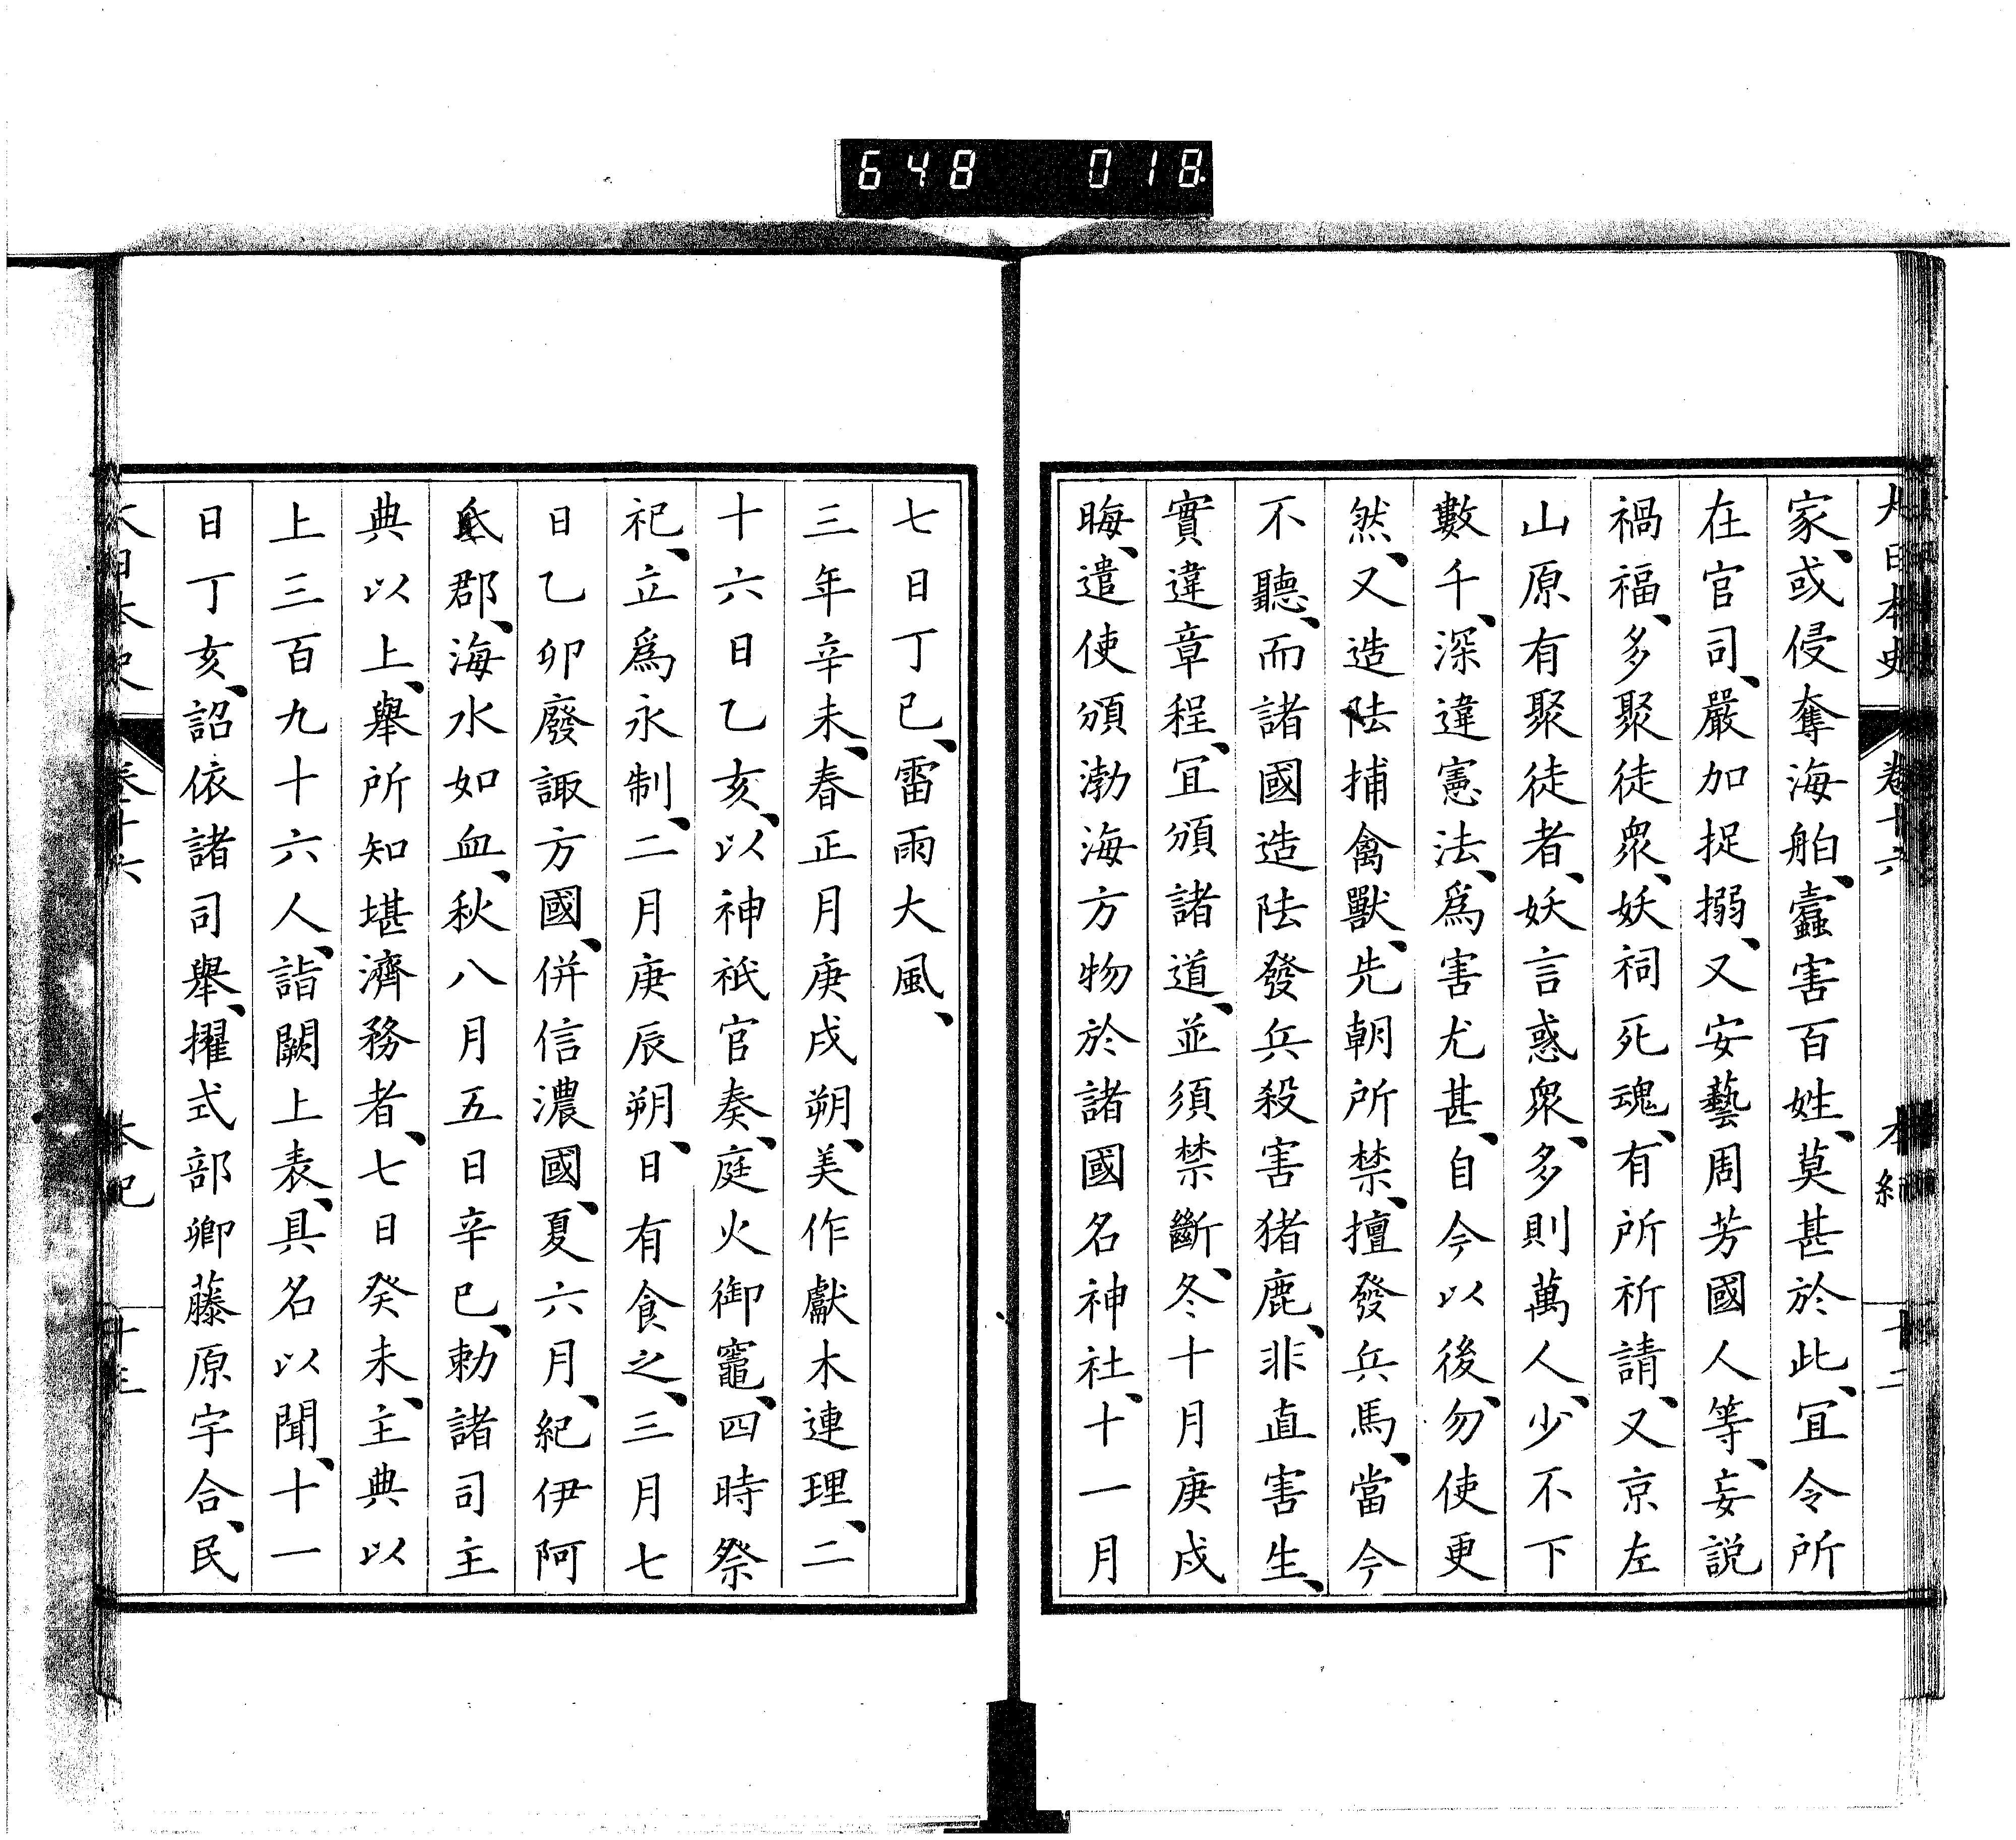 648 018
大日本史 卷十六 本紀 十二
家、或侵奪海舶、蠧害百姓、莫甚於此、宜令所
在官司、嚴加捉搦、又安藝周芳國人等、妄説
禍福、多聚徒衆、妖祠死魂、有所祈請、又京左
山原有聚徒者、妖言惑衆、多則萬人、少不下
數千、深違憲法、爲害尤甚、自今以後、勿使更
然、又造阹捕禽獸、先朝所禁、擅發兵馬、當今
不聽、而諸國造阹發兵殺害猪鹿、非直害生、
實違章程、宜頒諸道、並須禁斷、冬十月庚戌
晦、遣使頒渤海方物於諸國名神社、十一月
七日丁巳、雷雨大風、
三年辛未、春正月庚戌朔、美作獻木連理、二
十六日乙亥、以神祇官奏、庭火御竈、四時祭
祀、立爲永制、二月庚辰朔、日有食之、三月七
日乙卯廢諏方國、併信濃國、夏六月、紀伊阿
氐郡、海水如血、秋八月五日辛巳、勅諸司主
典以上、舉所知堪濟務者、七日癸未、主典以
上三百九十六人、詣闕上表、具名以聞、十一
日丁亥、詔依諸司舉、擢式部卿藤原宇合、民
大日本史 卷十六 本紀 十三